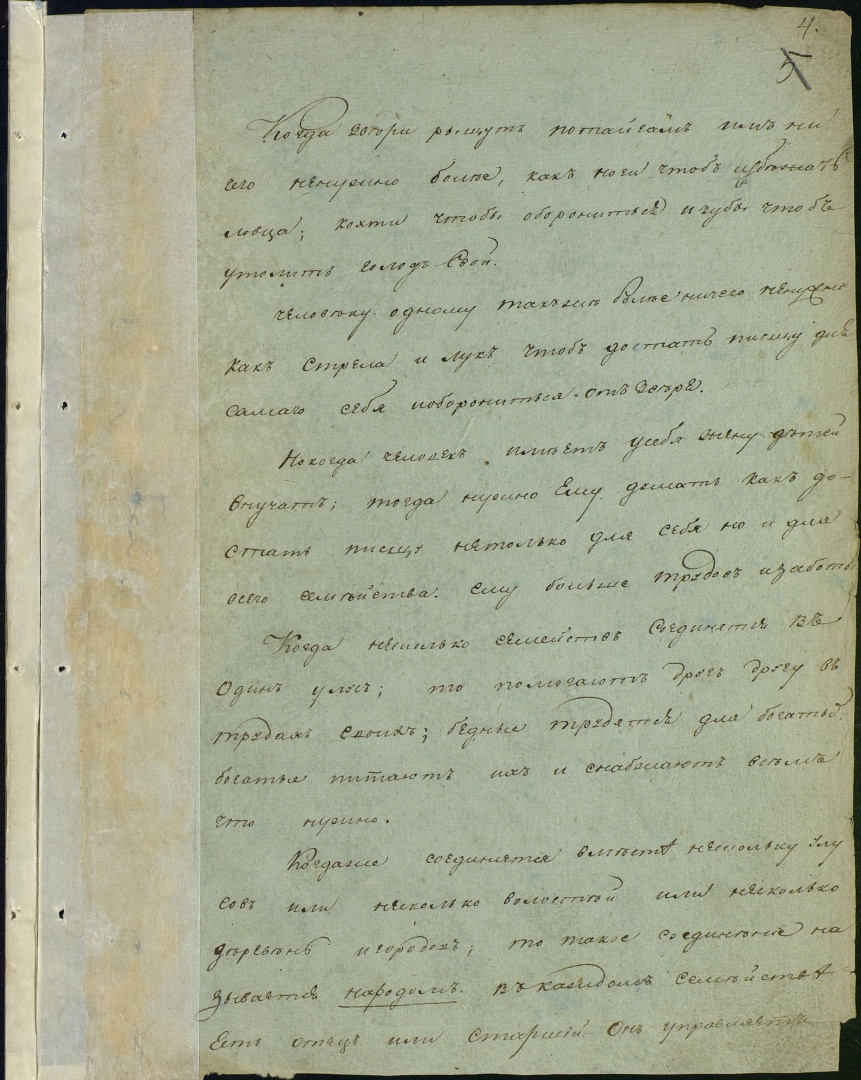 4.
5
Когда звери рыщутъ потайгамъ имъ ни
чего ненужно болѣе, какъ ноги чтобъ избѣжать
ловца; кохти чтобы оборониться изубы чтобъ
утолить голодъ свой.
Человѣку одному такъже болѣе ничего ненужно
какъ стрела и лукъ чтобъ достать пищу для
самаго себя иоборониться отъ звѣря.
Нокогда человекъ имѣетъ усебя жену дѣтей
внучатъ; тогда нужно Ему думать какъ до-
стать пищу нетолько для себя но и для
всего семѣйства. ему больше трудовъ изаботъ
Когда несколько семействъ соединятся въ
Одинъ улусъ; то помогаютъ другъ другу въ
трудахъ своихъ; бедные трудятся для богатыхъ,
богатые питаютъ ихъ и снабжаютъ всѣмъ
что нужно.
Когдаже соединятся вмѣстѣ несколку улу
совъ или несколько волостей или несколько
дѣревѣнь игородовъ; то такое соединѣние на
зывается народомъ. въ каждомъ семѣйствѣ
Есть отецъ или старшей. Онъ управляетъ